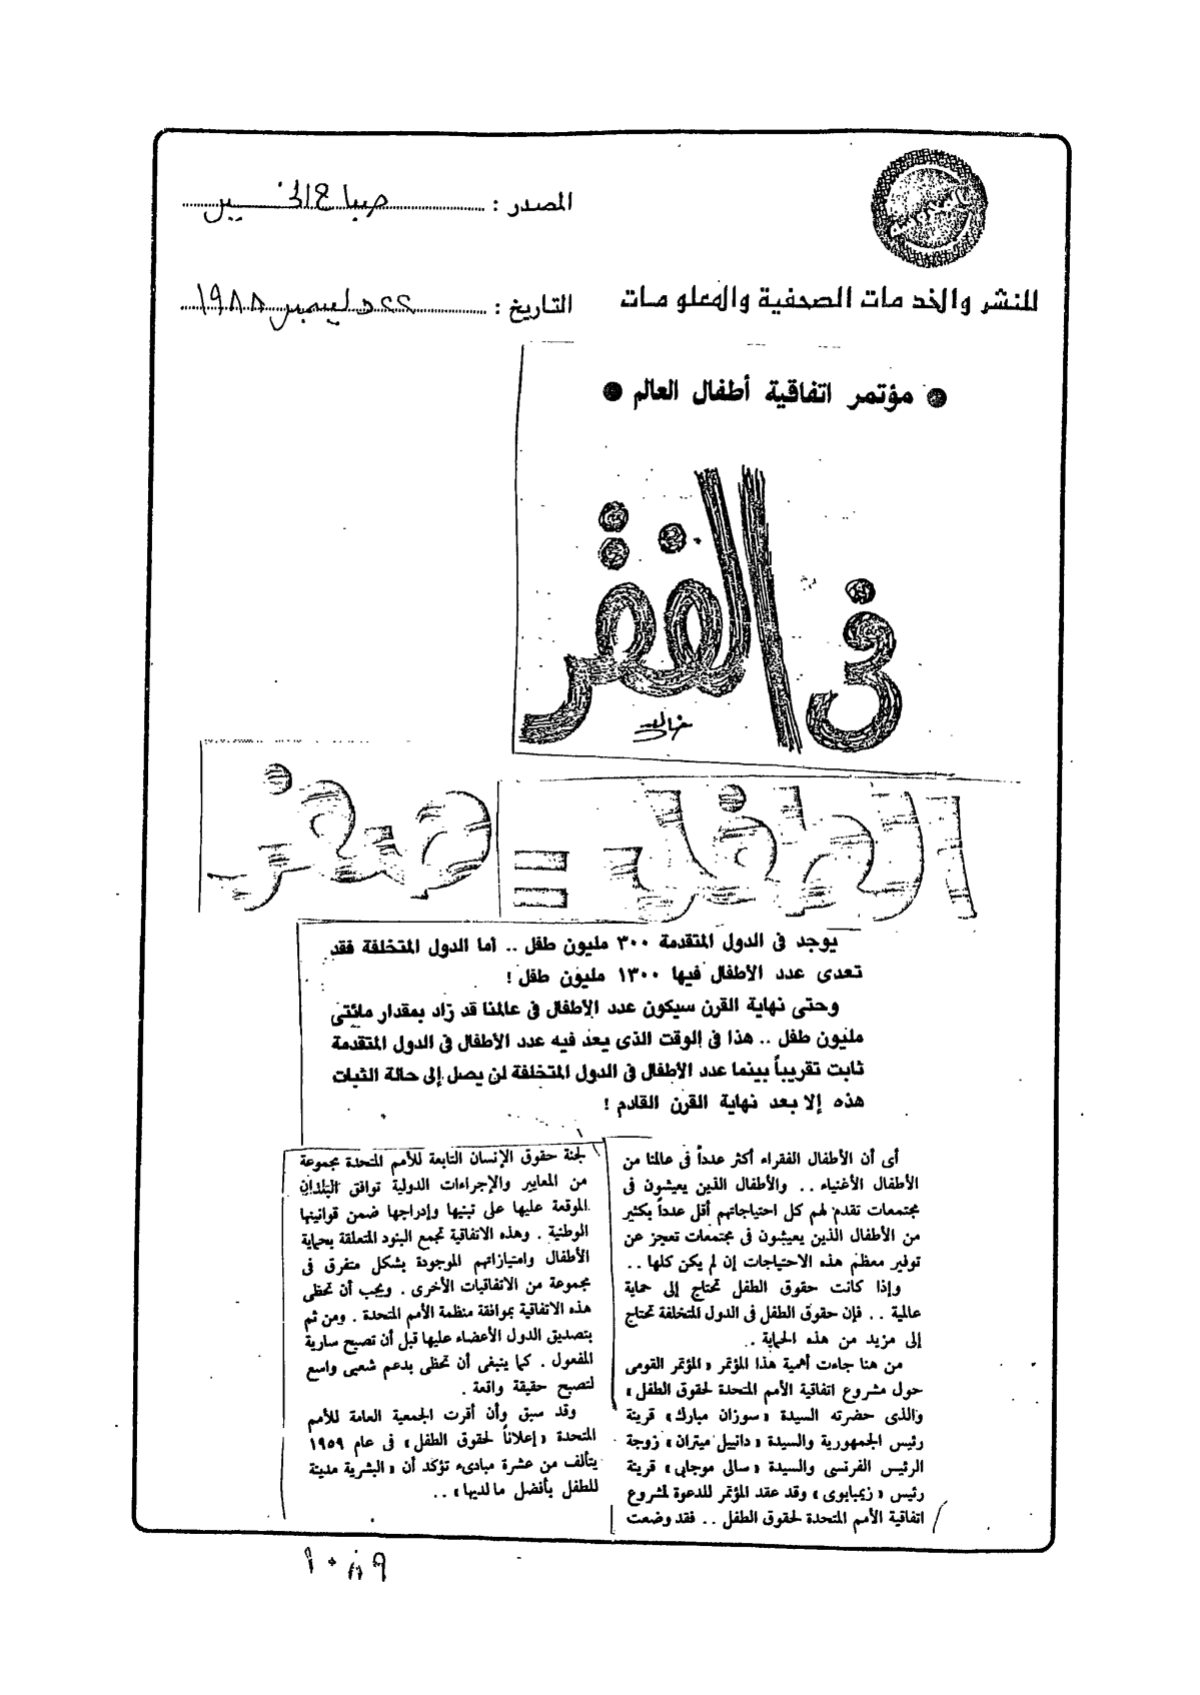 المصدر : صباح الخير
للنشر والخدمات الصحفية والمعلومات
التاريخ : ٢٢ ديسمبر ١٩٨٨
● مؤتمر اتفاقية أطفال العالم ●
فى الفقر
خالد
الطفل = صفر
يوجد فى الدول المتقدمة ٣٠٠ مليون طفل .. أما الدول المتخلفة فقد
تعدى عدد الأطفال فيها ١٣٠٠ مليون طفل !
وحتى نهاية القرن سيكون عدد الأطفال فى عالمنا قد زاد بمقدار مائتى
مليون طفل .. هذا فى الوقت الذى يعد فيه عدد الأطفال فى الدول المتقدمة
ثابت تقريباً بينما عدد الأطفال فى الدول المتخلفة لن يصل إلى حالة الثبات
هذه إلا بعد نهاية القرن القادم !
أى أن الأطفال الفقراء أكثر عدداً فى عالمنا من
الأطفال الأغنياء .. والأطفال الذين يعيشون فى
مجتمعات تقدم لهم كل احتياجاتهم أقل عدداً بكثير
من الأطفال الذين يعيشون فى مجتمعات تعجز عن
توفير معظم هذه الاحتياجات إن لم يكن كلها ..
وإذا كانت حقوق الطفل تحتاج إلى حماية
عالمية .. فإن حقوق الطفل فى الدول المتخلفة تحتاج
إلى مزيد من هذه الحماية .
من هنا جاءت أهمية هذا المؤتمر «المؤتمر القومى
حول مشروع اتفاقية الأمم المتحدة لحقوق الطفل»
والذى حضرته السيدة «سوزان مبارك» قرينة
رئيس الجمهورية والسيدة «دانييل ميتران» زوجة
الرئيس الفرنسى والسيدة «سالى موجابى» قرينة
رئيس «زيمبابوى» وقد عقد المؤتمر للدعوة لمشروع
اتفاقية الأمم المتحدة لحقوق الطفل .. فقد وضعت
لجنة حقوق الإنسان التابعة للأمم المتحدة مجموعة
من المعايير والإجراءات الدولية توافق البلدان
الموقعة عليها على تبنيها وإدراجها ضمن قوانينها
الوطنية . وهذه الاتفاقية تجمع البنود المتعلقة بحماية
الأطفال وامتيازاتهم الموجودة بشكل متفرق فى
مجموعة من الاتفاقيات الأخرى . ويجب أن تحظى
هذه الاتفاقية بموافقة منظمة الأمم المتحدة . ومن ثم
بتصديق الدول الأعضاء عليها قبل أن تصبح سارية
المفعول . كما ينبغى أن تحظى بدعم شعبى واسع
لتصبح حقيقة واقعة .
وقد سبق وأن أقرت الجمعية العامة للأمم
المتحدة «إعلاناً لحقوق الطفل» فى عام ١٩٥٩
يتألف من عشرة مبادىء تؤكد أن «البشرية مدينة
للطفل بأفضل ما لديها» ..